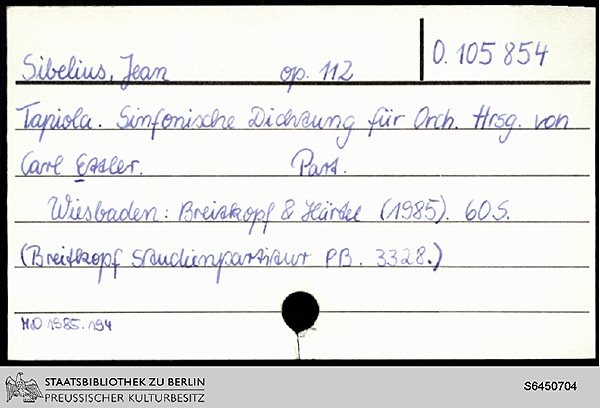 Sibelius, Jean op. 112 O. 105 854
Tapiola. Sinfonische Dichtung für Orch. Hrsg. von
Carl Etzler. Part.
Wiesbaden: Breitkopf & Härtel (1985). 60 S.
(Breitkopf Studienpartitur PB. 3328.)
MD 1985.194
STAATSBIBLIOTHEK ZU BERLIN
PREUSSISCHER KULTURBESITZ
S6450704